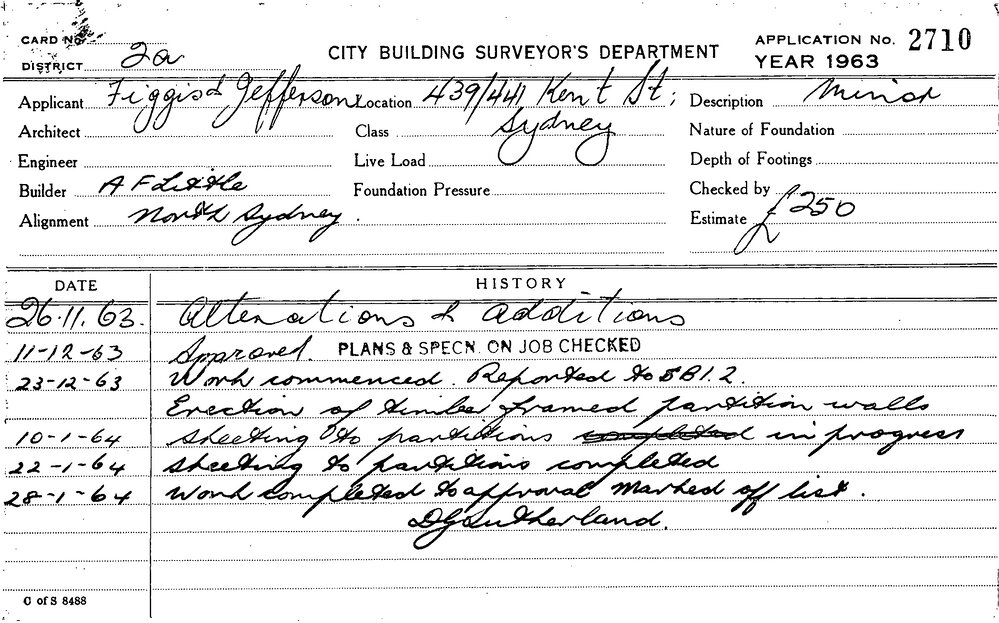 CARD No.
DISTRICT 2a
CITY BUILDING SURVEYOR'S DEPARTMENT
APPLICATION No. 2710
YEAR 1963
Applicant Figgis & Jefferson Location 439/441 Kent St; Description Minor
Architect Class Sydney Nature of Foundation
Engineer Live Load Depth of Footings
Builder A F Little Foundation Pressure Checked by
Alignment North Sydney. Estimate £250
DATE HISTORY
26.11.63. Alterations & additions
11-12-63 Approved. PLANS & SPECN. ON JOB CHECKED
23-12-63 Work commenced. Reported to SBI.2.
Erection of timber framed partition walls
10-1-64 Sheeting to partitions completed in progress
22-1-64 Sheeting to partitions completed
28-1-64 Work completed to approval Marked off list.
DGSutherland.
C of S 8488